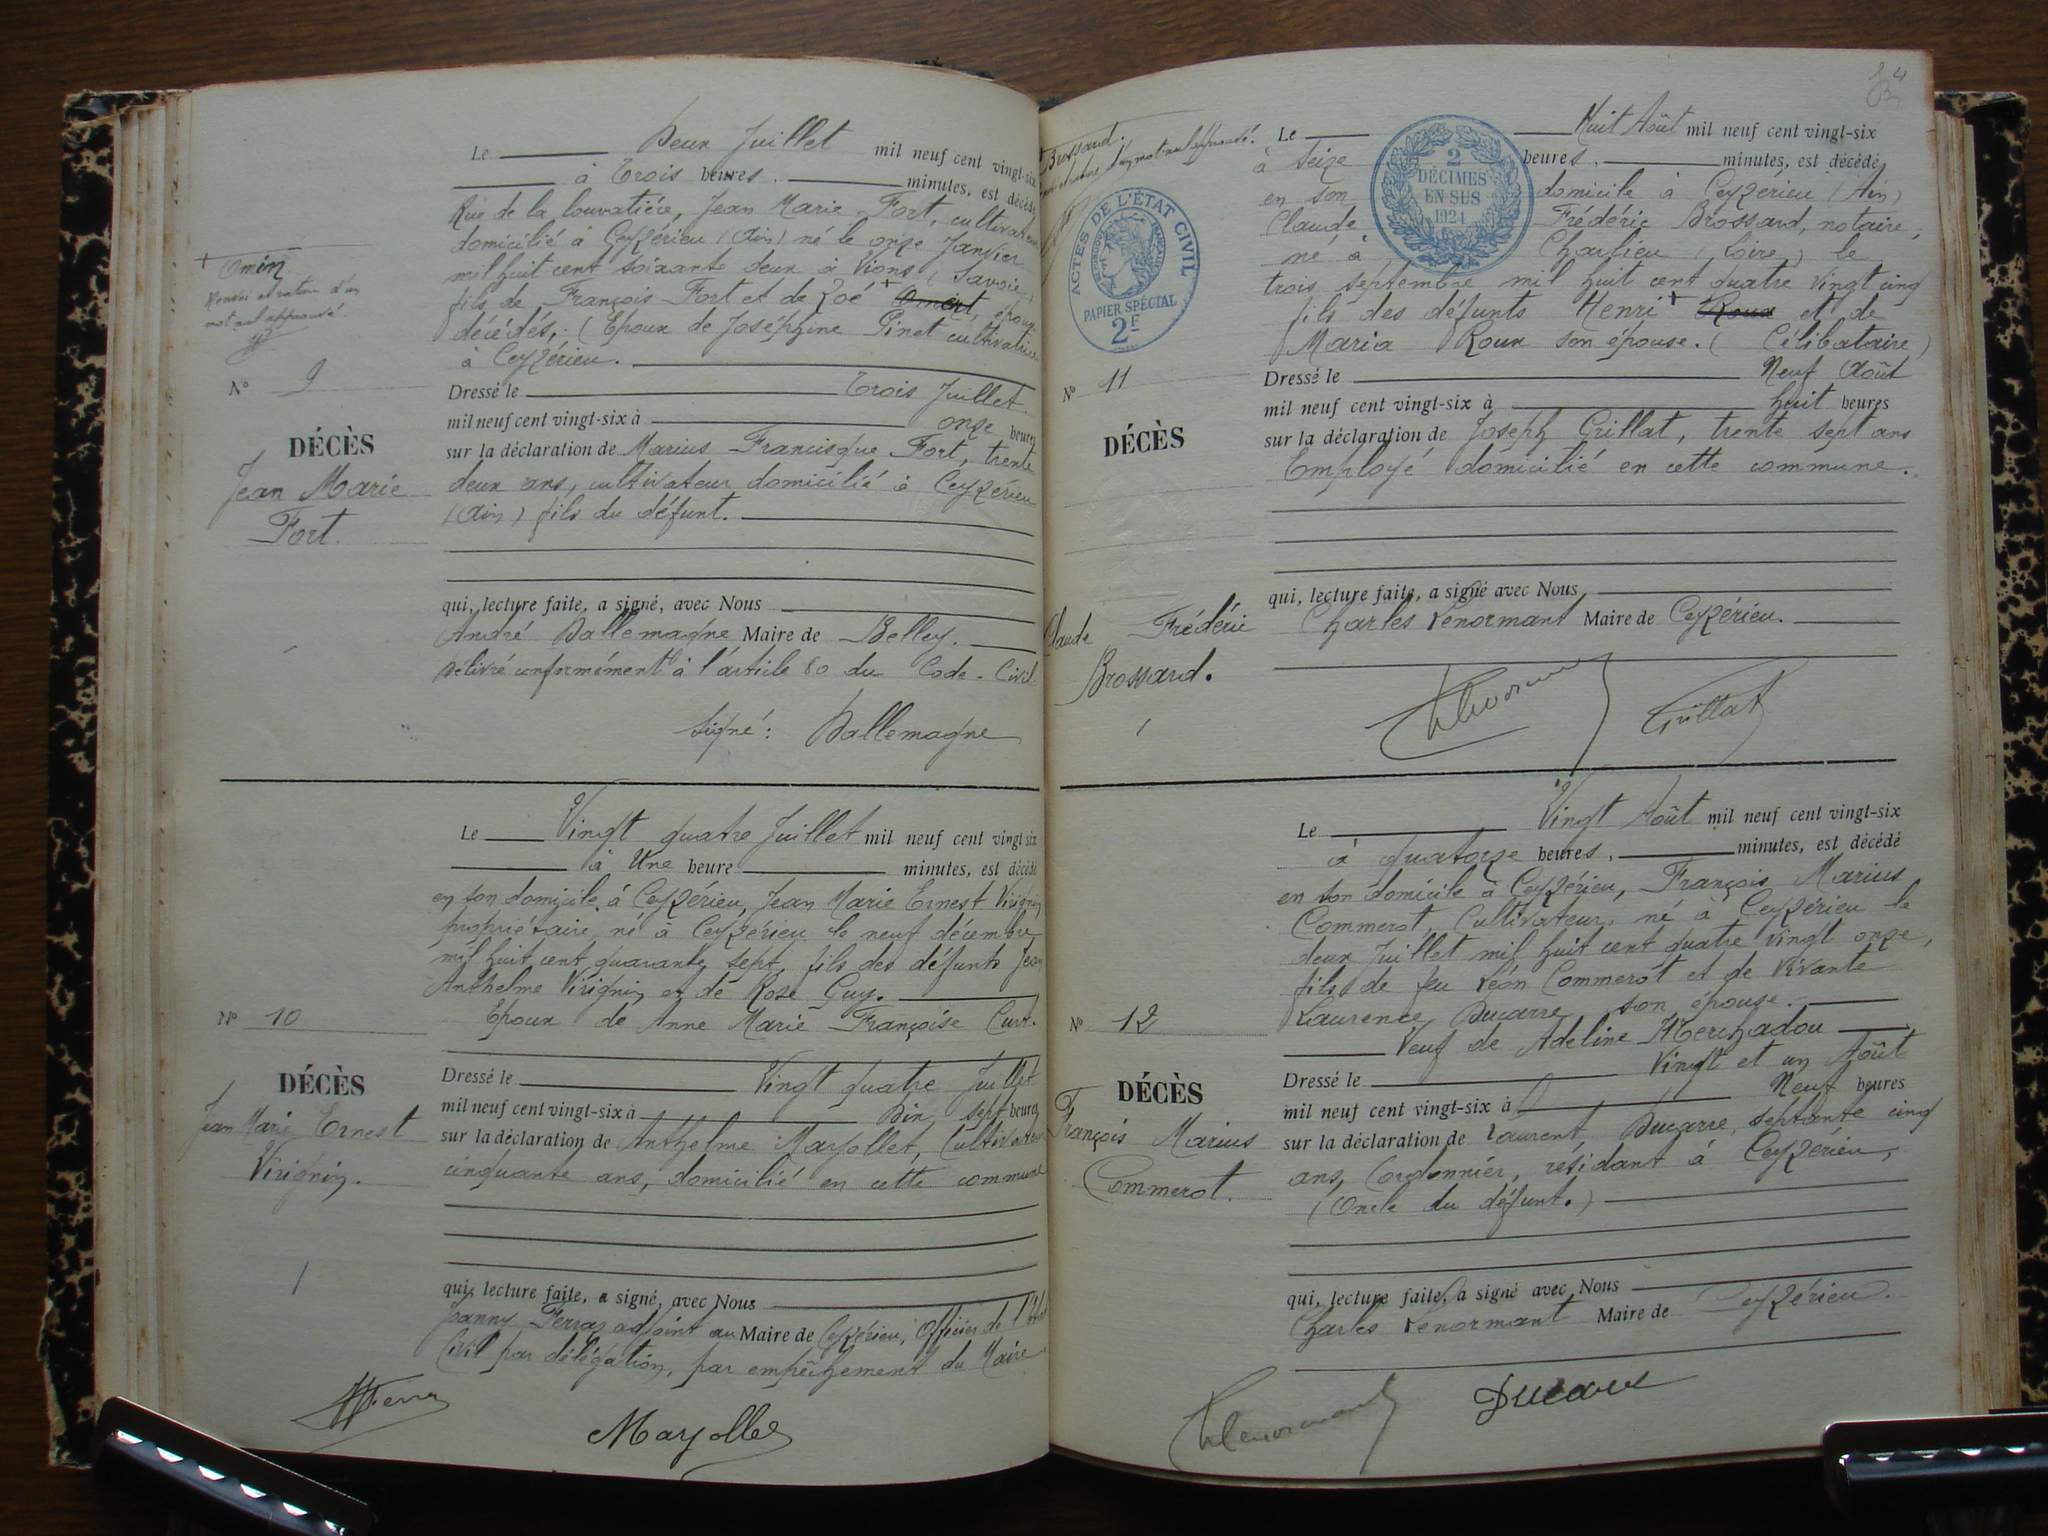 Le Deux Juillet mil neuf cent vingt-six
à Trois heures. minutes, est décédé
Rue de la louvatière, Jean Marie Fort, cultivateur
domicilié à Ceyzérieu (Ain) né le onze Janvier
mil huit cent soixante deux à Vions (Savoie)
fils de François Fort et de Zoé + Oment, époux
décédés,- (Epoux de Joséphine Pinet cultivatrice
à Ceyzérieu.
+ Omin
Renvoi et rature d'un
mot nul approuvé.
N° 9
DÉCÈS
Jean Marie
Fort.
Dressé le Trois Juillet
mil neuf cent vingt-six à onze heures
sur la déclaration de Marius Francisque Fort, trente
deux ans, cultivateur domicilié à Ceyzérieu
(Ain) fils du défunt.
qui, lecture faite, a signé, avec Nous
André Dallemagne Maire de Belley.
Délivré conformément à l'article 80 du Code-Civil
Signé: Dallemagne
Le Vingt quatre Juillet mil neuf cent vingt-six
à Une heure minutes, est décédé
en son domicile à Ceyzérieu, Jean Marie Ernest Virignin
propriétaire, né à Ceyzérieu le neuf décembre
mil huit cent quarante sept, fils des défunts Jean
Anthelme Virignin et de Rose Guy.
Epoux de Anne Marie Françoise Curt.
N° 10
DÉCÈS
Jean Marie Ernest
Virignin.
Dressé le Vingt quatre Juillet
mil neuf cent vingt-six à Dix sept heures
sur la déclaration de Anthelme Marjollet, Cultivateur
cinquante ans, domicilié en cette commune
qui, lecture faite, a signé, avec Nous
Joanny Ferraz adjoint au Maire de Ceyzérieu, Officier de l'Etat
Civil par délégation, par empêchement du Maire.
Marjollet
Brossard.
ACTES DE L'ÉTAT CIVIL
PAPIER SPÉCIAL
2F
2
DÉCIMES
EN SUS
1924
Le Huit Août mil neuf cent vingt-six
à Seize heures. minutes, est décédé
en son domicile à Ceyzérieu (Ain)
Claude Frédéric Brossard, notaire,
né à Charlieu (Loire) le
trois septembre mil huit cent quatre vingt cinq
fils des défunts Henri + Roux et de
Maria Roux son épouse. (Célibataire)
N° 11
DÉCÈS
Claude Frédéric
Brossard.
Dressé le Neuf Août
mil neuf cent vingt-six à huit heures
sur la déclaration de Joseph Grillat, trente sept ans
Employé domicilié en cette commune.
qui, lecture faite, a signé avec Nous
Charles Lenormant Maire de Ceyzérieu.
Grillat
Le Vingt Août mil neuf cent vingt-six
à quatorze heures. minutes, est décédé
en son domicile à Ceyzérieu, François Marius
Commerot, Cultivateur, né à Ceyzérieu le
deux Juillet mil huit cent quatre vingt onze,
fils de feu Léon Commerot et de Vivante
Laurence Ducarre son épouse.
Veuf de Adeline
N° 12
DÉCÈS
François Marius
Commerot.
Dressé le Vingt et un Août
mil neuf cent vingt-six à Neuf heures
sur la déclaration de Laurent Ducarre, septante cinq
ans, Cordonnier, résidant à Ceyzérieu,
(Oncle du défunt.)
qui, lecture faite, a signé avec Nous
Charles Lenormant Maire de Ceyzérieu.
Ducarre